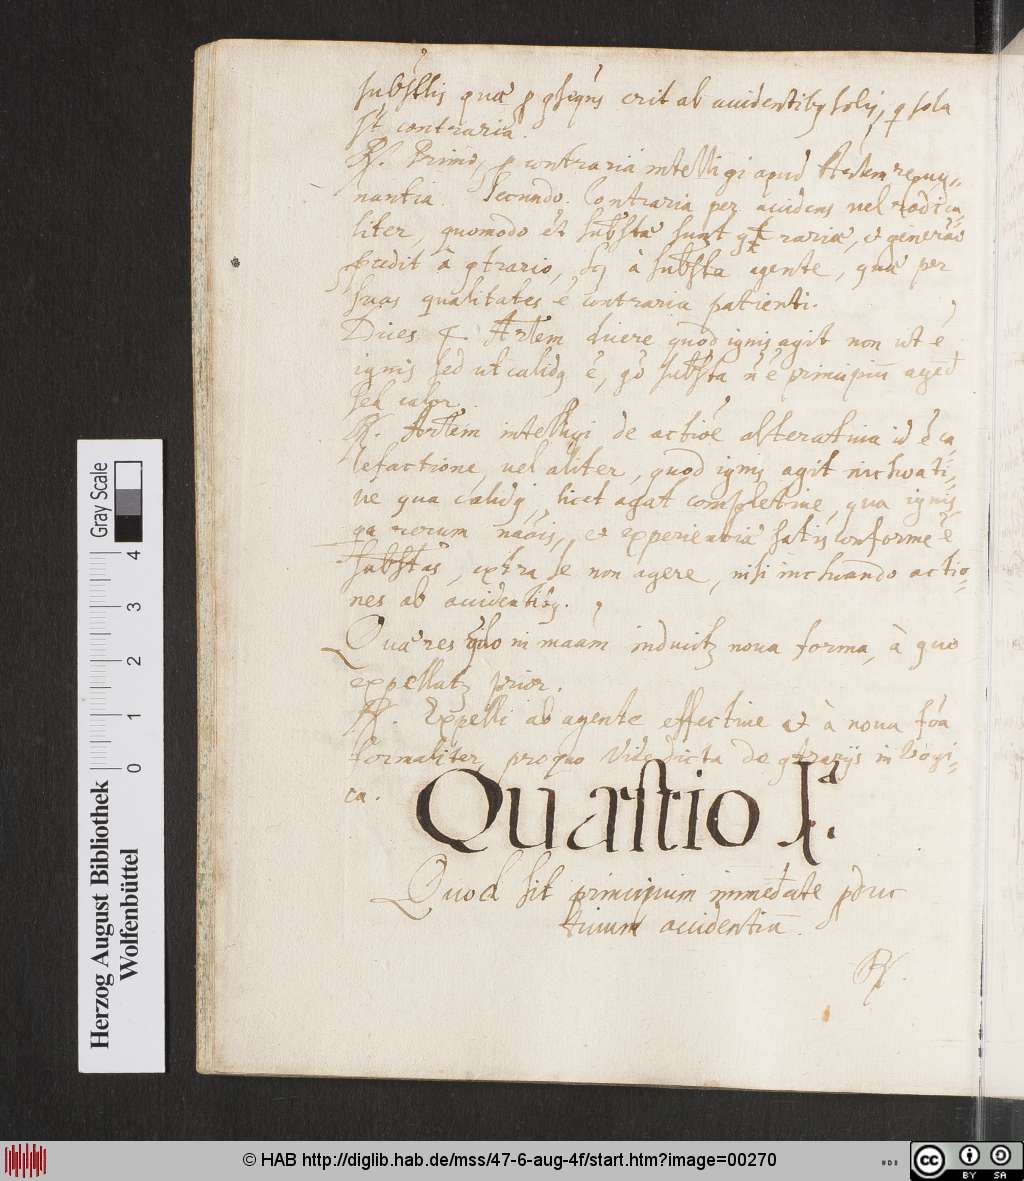 substalis quae p gseqns erit ab accidentibq solis, q sola
st contraria.
R. Primo, p contraria intelligi apud Artem repug-
nantia. Secundo. Contraria per accidens vel radica-
liter, quomodo et substae sunt gtrariae, et generao
à gtrario, à substa agente, quae per
suas qualitates ē contraria patienti.
Dices Artem dicere quod ignis agit non ut ē
ignis sed ut calidq ē, substa ñ ē principiū agend
sed calor.
R. Artem intelligi de actiõe alterativa id ē ca
lefactione, vel aliter, quod ignis agit inchoati-
ve qua calidq, licet agat completive, qua ignis
qa rerum naõis, et experientiae satis conforme ē
substas, extra se non agere, nisi inchoando actio-
nes ab accidentibq.
Quaeres qdo in maam inducitz nova forma, à quo
expellatz prior.
R. Expelli ab agente effective et à nova foa
formaliter, pro quo Vide dicta de gtrarijs in Logi-
ca.
Quaestio 1a.
Quod sit principium immediate pduc
tivum accidentiū.
R.
Gray Scale
4
3
2
1
0
Herzog August Bibliothek
Wolfenbüttel
© HAB http://diglib.hab.de/mss/47-6-aug-4f/start.htm?image=00270
cc BY SA